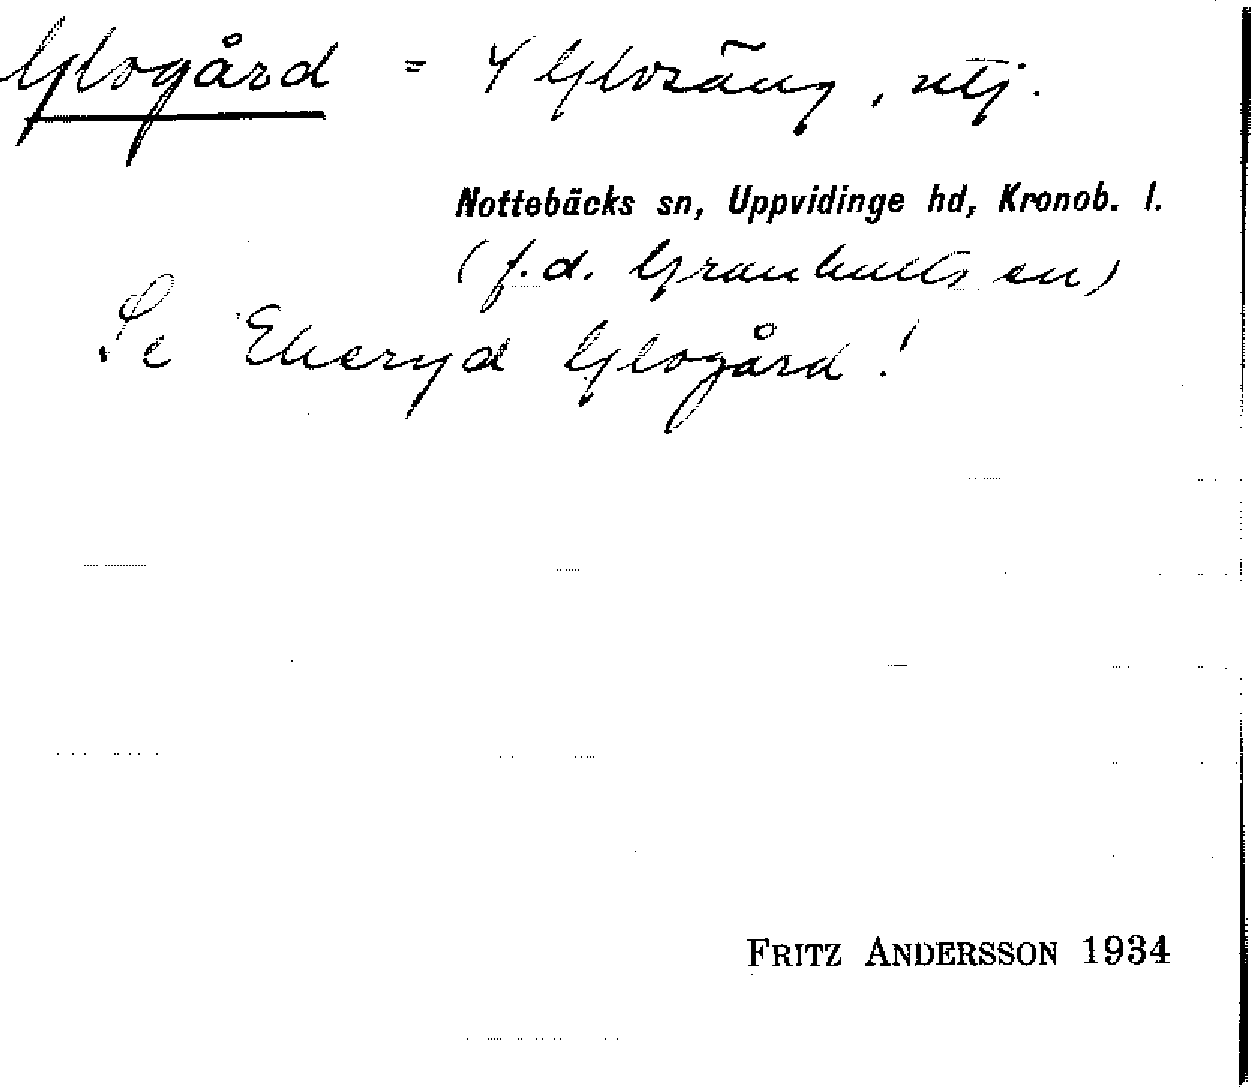 Glogård = Y Glosäng, utj.
Nottebäcks sn, Uppvidinge hd, Kronob. l.
(f.d. Granhults sn)
Se Ekeryd Glogård!
FRITZ ANDERSSON 1934